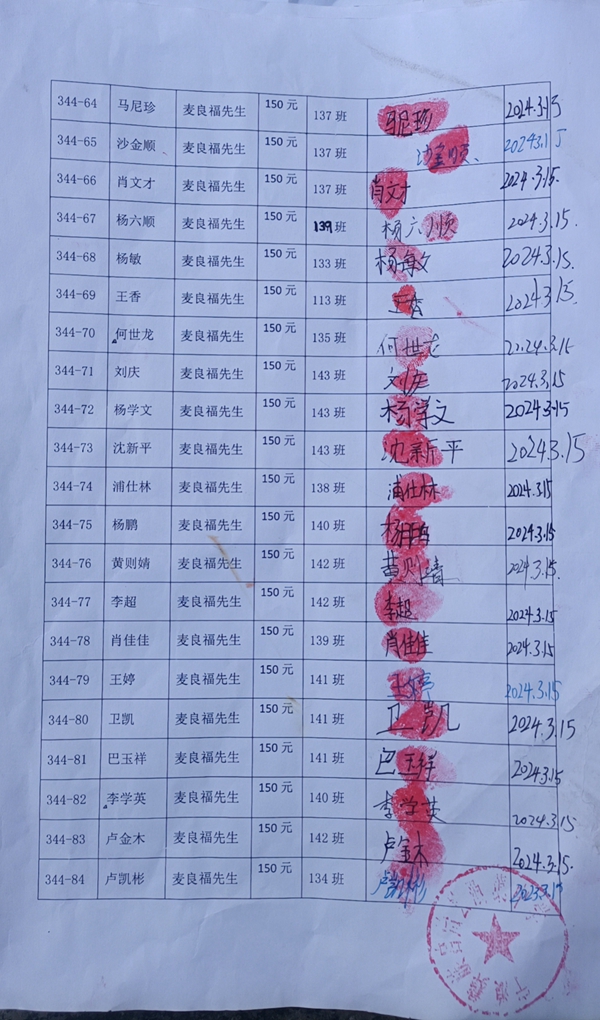 344-64 马尼珍 麦良福先生 150元 137班 马尼珍 2024.3.15
344-65 沙金顺 麦良福先生 150元 137班 沙金顺、 2024.3.15
344-66 肖文才 麦良福先生 150元 137班 肖文才 2024.3.15.
344-67 杨六顺 麦良福先生 150元 139班 杨六顺 2024.3.15.
344-68 杨敏 麦良福先生 150元 133班 杨敏 2024.3.15.
344-69 王香 麦良福先生 150元 113班 王香 2024.3.15.
344-70 何世龙 麦良福先生 150元 135班 何世龙 2024.3.15
344-71 刘庆 麦良福先生 150元 143班 刘庆 2024.3.15
344-72 杨学文 麦良福先生 150元 143班 杨学文 2024.3.15
344-73 沈新平 麦良福先生 150元 143班 沈新平 2024.3.15
344-74 浦仕林 麦良福先生 150元 138班 浦仕林 2024.3.15
344-75 杨鹏 麦良福先生 150元 140班 杨鹏 2024.3.15
344-76 黄则婧 麦良福先生 150元 142班 黄则婧 2024.3.15.
344-77 李超 麦良福先生 150元 142班 李超 2024.3.15
344-78 肖佳佳 麦良福先生 150元 139班 肖佳佳 2024.3.15
344-79 王婷 麦良福先生 150元 141班 王婷 2024.3.15
344-80 卫凯 麦良福先生 150元 141班 卫凯 2024.3.15
344-81 巴玉祥 麦良福先生 150元 141班 巴玉祥 2024.3.15
344-82 李学英 麦良福先生 150元 140班 李学英 2024.3.15
344-83 卢金木 麦良福先生 150元 142班 卢金木 2024.3.15.
344-84 卢凯彬 麦良福先生 150元 134班 卢凯彬